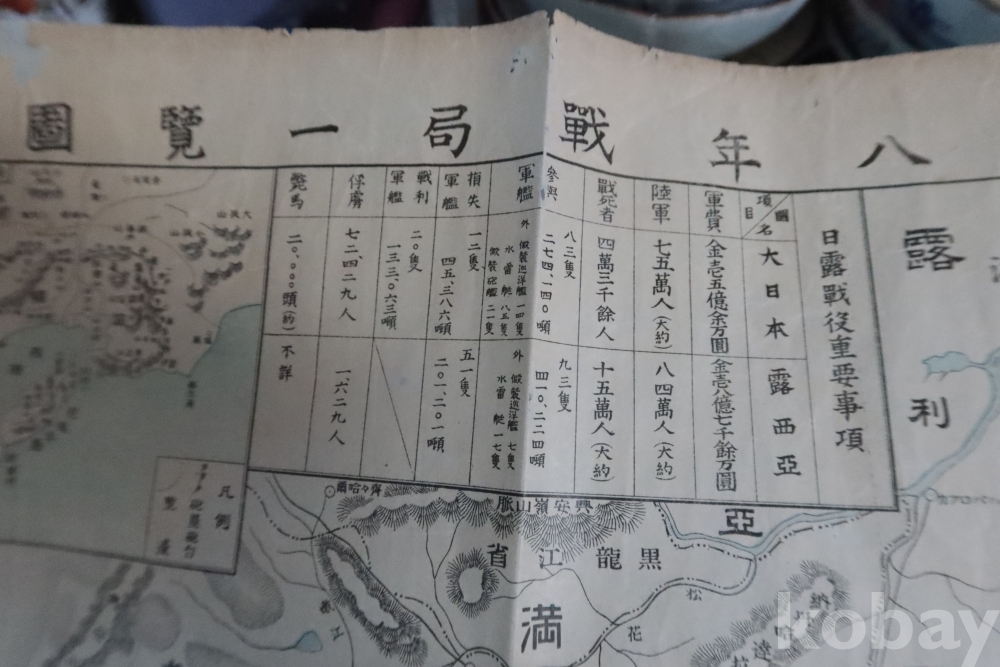 八年戰局一覽圖
日露戰役重要事項
項目 國名
大日本
露西亞
軍費
金壱五億余万圓
金壱八億七千餘万圓
陸軍
七五萬人(大約)
八四萬人(大約)
戰死者
四萬三千餘人
十五萬人(大約)
參與軍艦
八三隻
二七四、一四〇噸
九三隻
四一〇、二二四噸
外 假裝巡洋艦 一四隻
水雷艇 八五隻
假裝砲艦 二一隻
外 假裝巡洋艦 七隻
水雷艇 一七隻
損失軍艦
一二隻
四五、三八六噸
五一隻
二〇一、二〇一噸
戰利軍艦
二〇隻
一三三、〇六三噸
俘虜
七二、四二九人
一、六二九人
斃馬
二〇、〇〇〇頭(約)
不詳
露
利
亞
興安嶺山脈
黑龍江省
滿
松
花
凡例
kobay